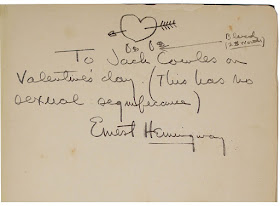 Blood
To Jack Cowles on
Valentine's day. (This has no
sexual significance)
Ernest Hemingway